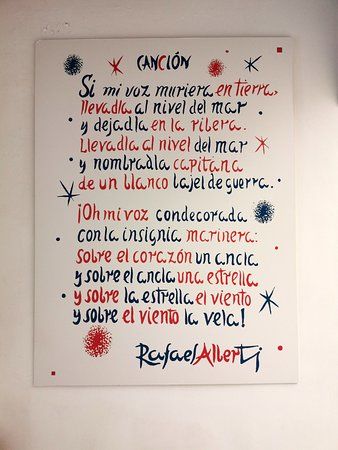 CANCIÓN
Si mi voz muriera en tierra,
llevadla al nivel del mar
y dejadla en la ribera.
Llevadla al nivel del mar
y nombradla capitana
de un blanco bajel de guerra.
¡Oh mi voz condecorada
con la insignia marinera:
sobre el corazón un ancla
y sobre el ancla una estrella
y sobre la estrella el viento
y sobre el viento la vela!
Rafael Alberti